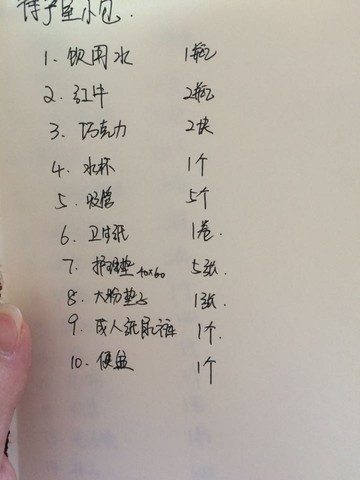 待产室小包.
1. 饮用水 1瓶
2. 红牛 2瓶
3. 巧克力 2块
4. 水杯 1个
5. 吸管 5个
6. 卫生纸 1卷.
7. 护理垫 40×60 5张.
8. 大垫子 1张.
9. 成人纸尿裤 1个.
10. 便盆 1个